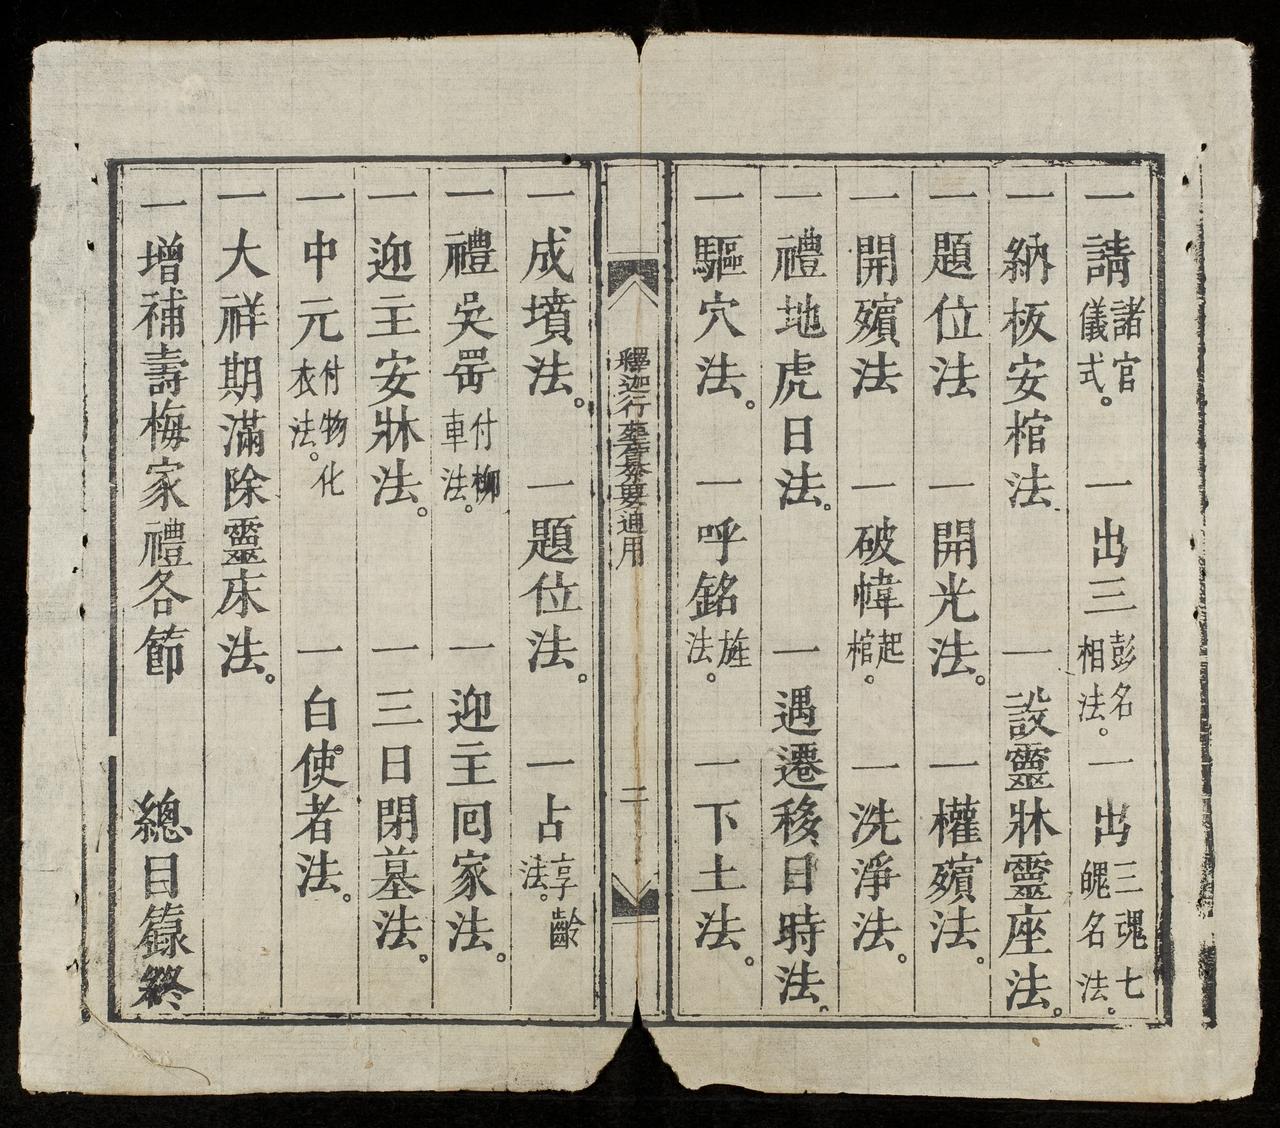 一請諸官儀式。一出三彭名相法。一出三魂七魄名法。
一納板安棺法 一設靈牀靈座法。
一題位法 一開光法。一權殯法。
一開殯法 一破幃起棺。一洗淨法。
一禮地虎日法。 一遇遷移日時法。
一驅穴法。一呼銘旌法。一下土法。
釋迦行喪會祭要通用
二
一成墳法。一題位法。一占享齡法。
一禮吳 付柳車法。一迎主回家法。
一迎主安牀法。 一三日閉墓法。
一中元付物化衣法。 一白使者法。
一大祥期滿除靈床法。
一增補壽梅家禮各節 總目籙終